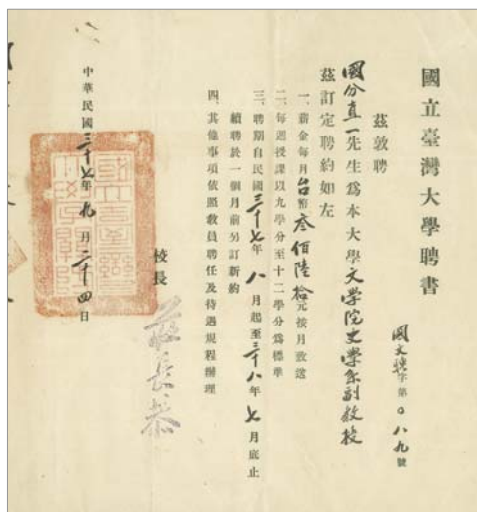 國立臺灣大學聘書
國文聘字第〇八九號
茲敦聘
國分直一先生為本大學文學院史學系副教授
茲訂定聘約如左
一、薪金每月台幣叁佰陸拾元按月致送
二、每週授課以九學分至十二學分為標準
三、聘期自民國三十七年八月起至三十八年七月底止
續聘於一個月前另訂新約
四、其他事項依照教員聘任及待遇規程辦理
校長 莊長恭
中華民國三十七年九月二十四日